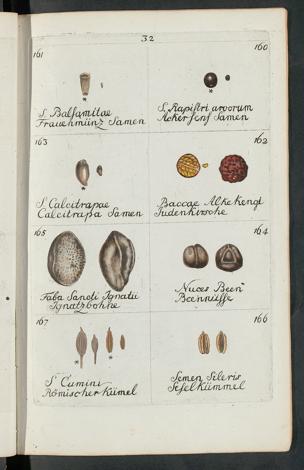 32
161
160
S. Balsamitae
Frauenmünz Samen
S. Rapistri arvorum
Ackersenf Samen
163
162
S. Calcitrapae
Calcitrapa Samen
Baccae Alkekengi
Judenkirsche
165
164
Faba Sancti Ignatii
Ignatzbohne
Nuces Been
Beennüsse
167
166
S. Cumini
Römischer Kümel
Semen Sileris
Sesel Kümmel